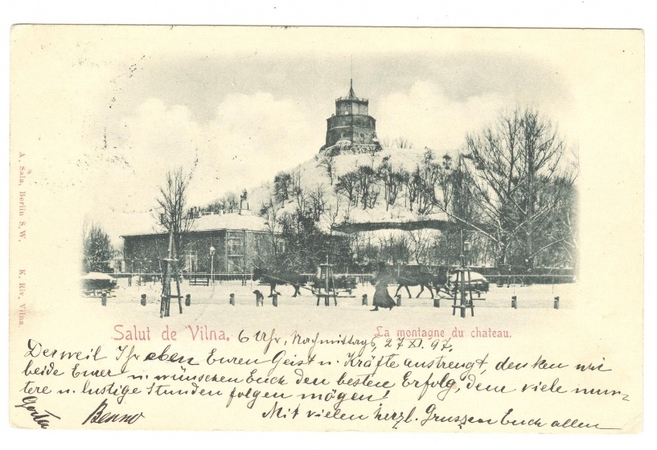 A. Sala, Berlin S.W.
K. Riv, Vilna.
Salut de Vilna.
La montagne du chateau.
6 Uhr, Nachmittags 27 XI. 97.
Derweil Ihr eben Euren Geist u. Kräfte anstrengt, denken wir
beide Eurer u. wünschen Euch den besten Erfolg, dem viele mun-
tere u. lustige Stunden folgen mögen!
Mit vielen herzl. Grussen Euch allen
Benno